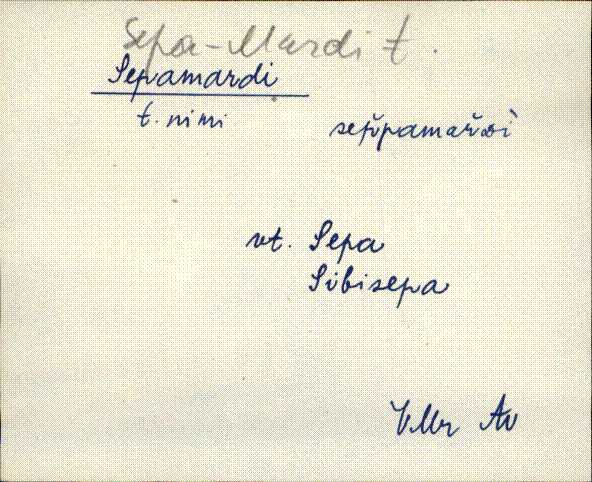 Sepa-Mardi t.
Sepamardi
t. nimi
sep̌pamař̌di
vt. Sepa
Sibisepa
VMr Av